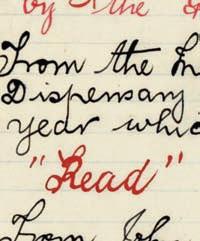 by the
From the In
Dispensary
year whic
"Read"
From John